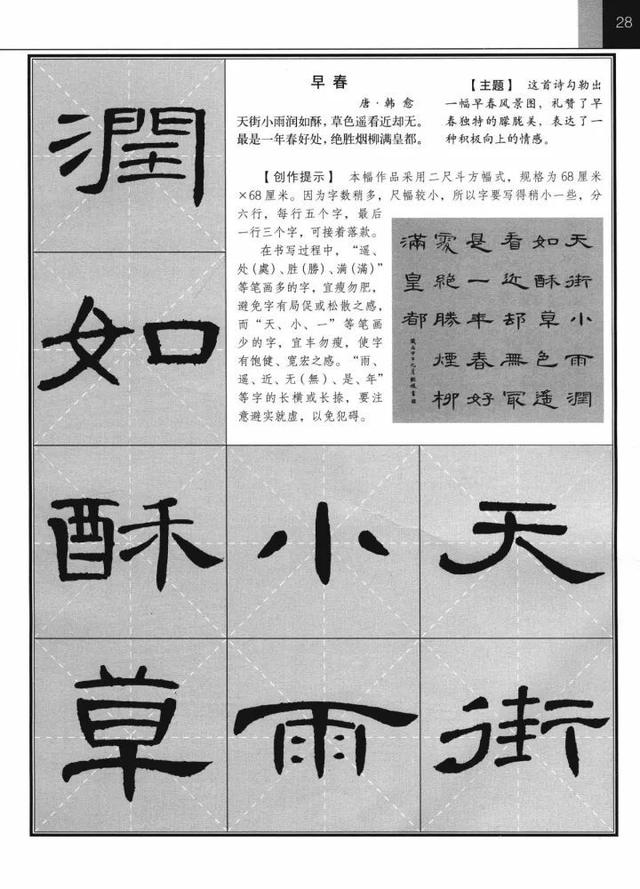 28
早春
唐·韩 愈
天街小雨润如酥，草色遥看近却无。
最是一年春好处，绝胜烟柳满皇都。
【主题】 这首诗勾勒出
一幅早春风景图，礼赞了早
春独特的朦胧美，表达了一
种积极向上的情感。
【创作提示】 本幅作品采用二尺斗方幅式，规格为68厘米
×68厘米。因为字数稍多，尺幅较小，所以字要写得稍小一些，分
六行，每行五个字，最后
一行三个字，可接着落款。
在书写过程中，“遥、
处（處）、胜（勝）、满（滿）”
等笔画多的字，宜瘦勿肥，
避免字有局促或松散之感，
而“天、小、一”等笔画
少的字，宜丰勿瘦，使字
有饱健、宽宏之感。“雨、
遥、近、无（無）、是、年”
等字的长横或长捺，要注
意避实就虚，以免犯碍。
天街小雨潤
如酥草色遥
看近却無冣
是一年春好
處絶勝煙柳
滿皇都
天街
小雨
潤如酥草